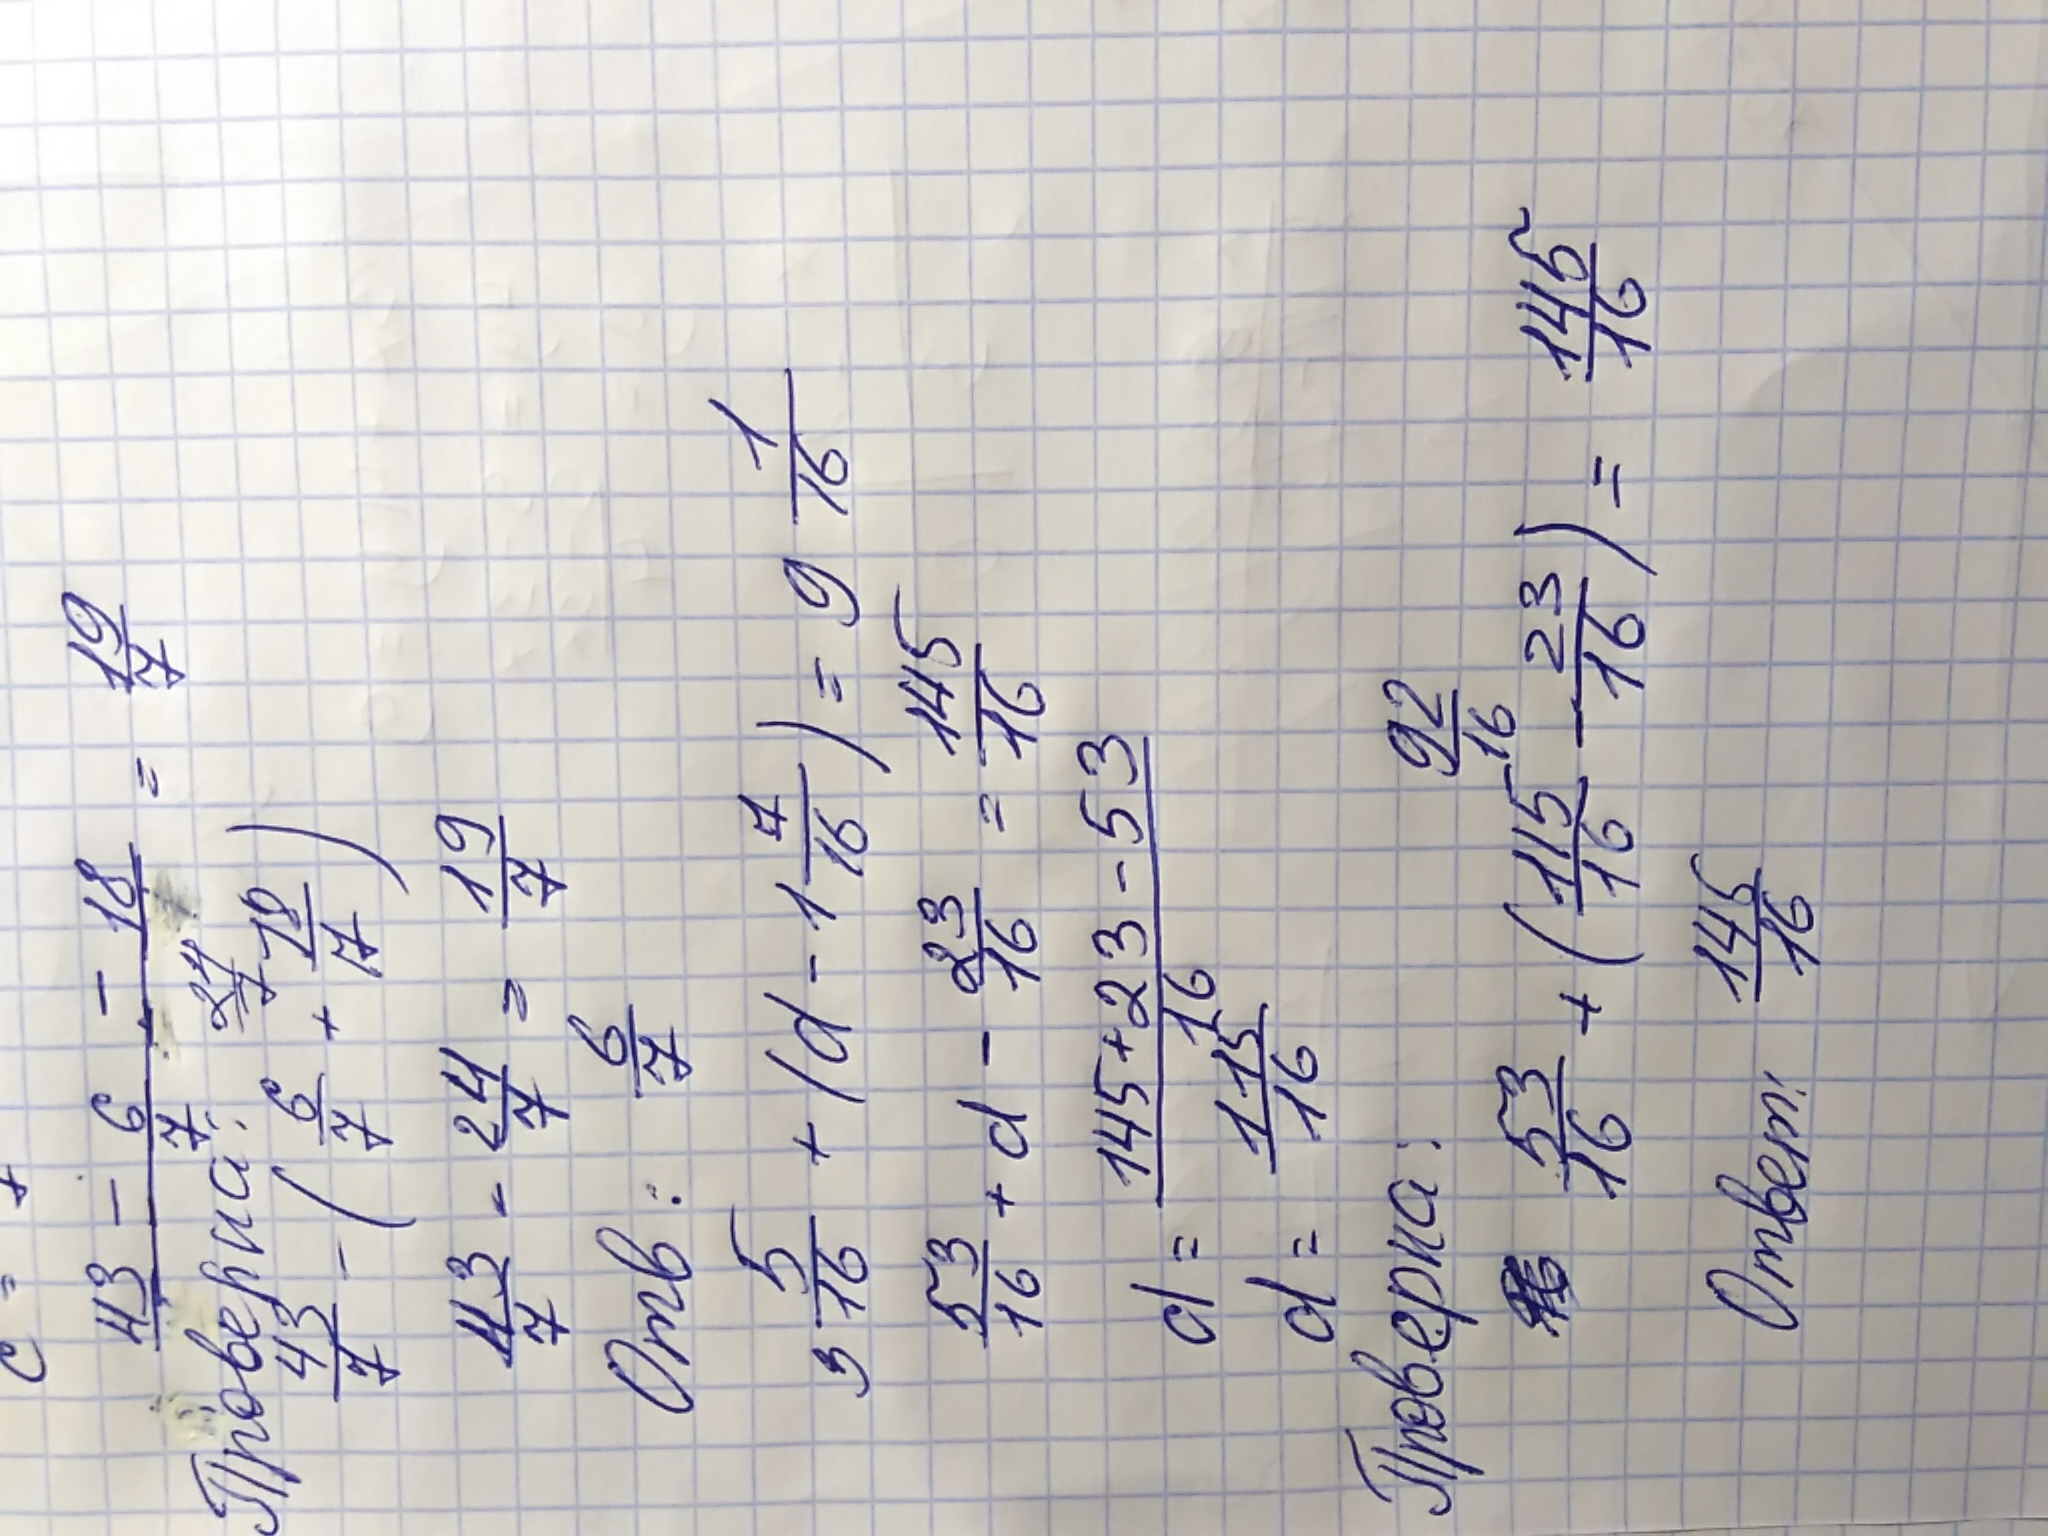 43 - 6 - 18 / 7 = 19/7
Проверка: 24/7
43/7 - (6/7 + 18/7)
43/7 - 24/7 = 19/7
Отв: 6/7
3 5/16 + (d - 1 7/16) = 9 1/16
53/16 + d - 23/16 = 145/16
d = 145 + 23 - 53 / 16
d = 115/16
Проверка: 92/16
53/16 + (115/16 - 23/16) = 145/16
Ответ: 145/16